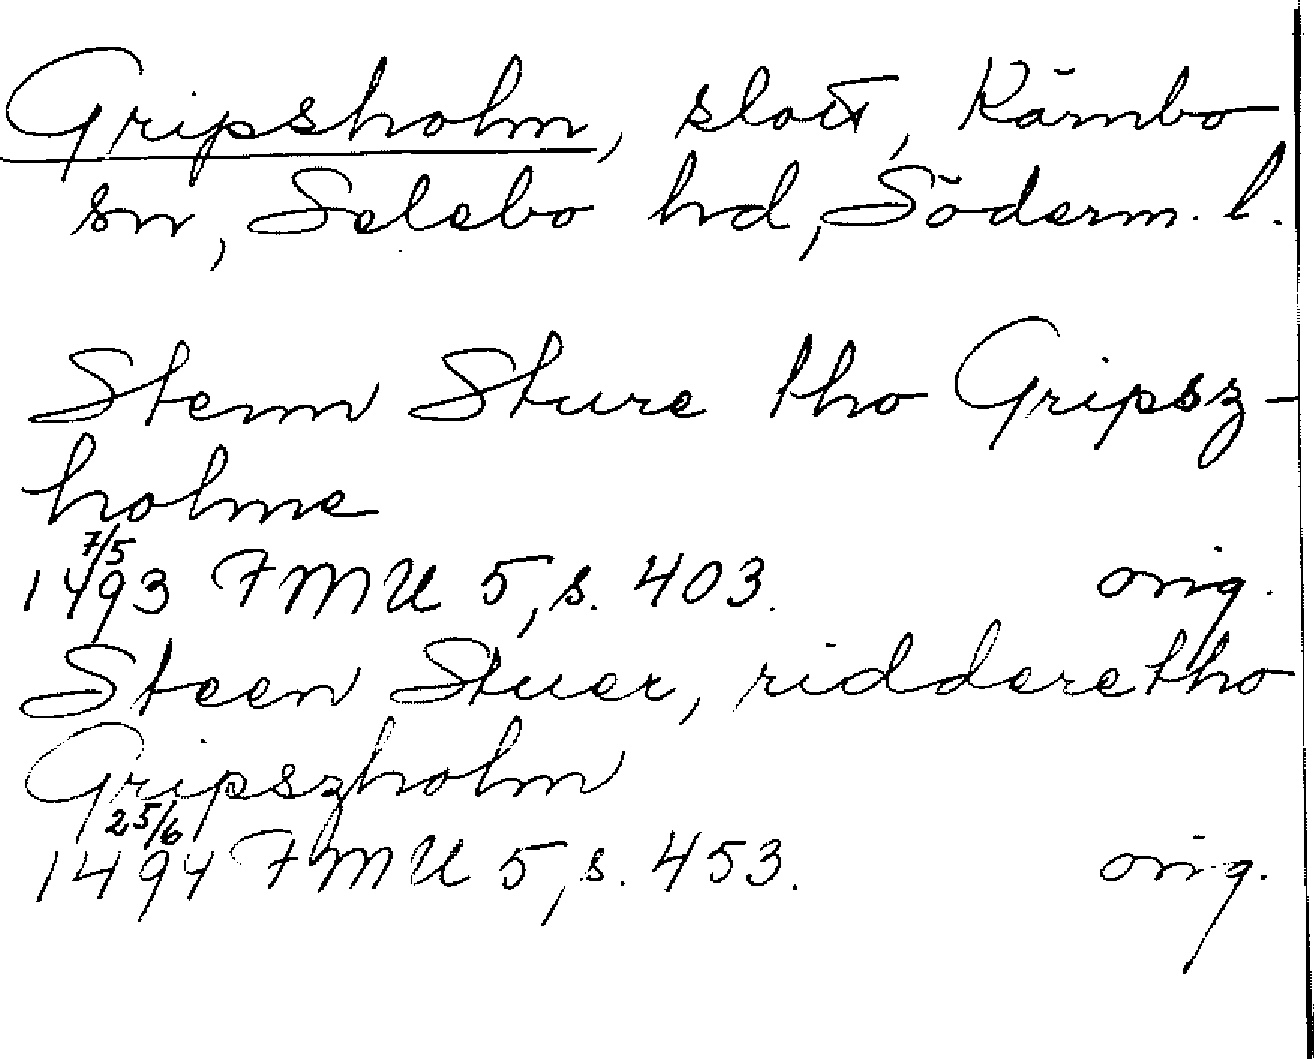 Gripsholm, slott, Kärnbo
sn, Selebo hd, Söderm. l.
Stenn Sture tho Gripsz-
holme
7/5
1493 FMU 5, s. 403. orig.
Steen Stuer, riddere tho
Gripszholm
25/6
1494 FMU 5, s. 453. orig.